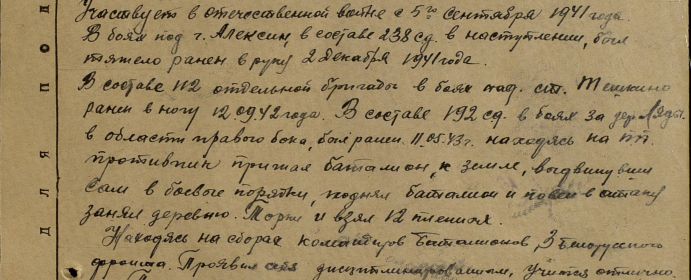 Участвует в отечественной войне с 5го сентября 1941 года.
В боях под г. Алексин, в составе 238 сд. в наступлении, был
тяжело ранен в руку 2 декабря 1941 года.
В составе 112 отдельной бригады в боях под. ст. Тешкино
ранен в ногу 12.09.42 года. В составе 192 сд. в боях за дер Ляды
в области правого бока, был ранен 11.05.43 г. находясь на
противник прижал баталион, к земле, выдвинувшись
сам в боевые порядки, поднял баталион и повел в атаку
занял деревню. и взял 12 пленных.
Находясь на сборах командиров баталионов, 3 Белорусского
фронта. Проявил себя дисциплинированным, учится отлично.
ДЛЯ ПОД